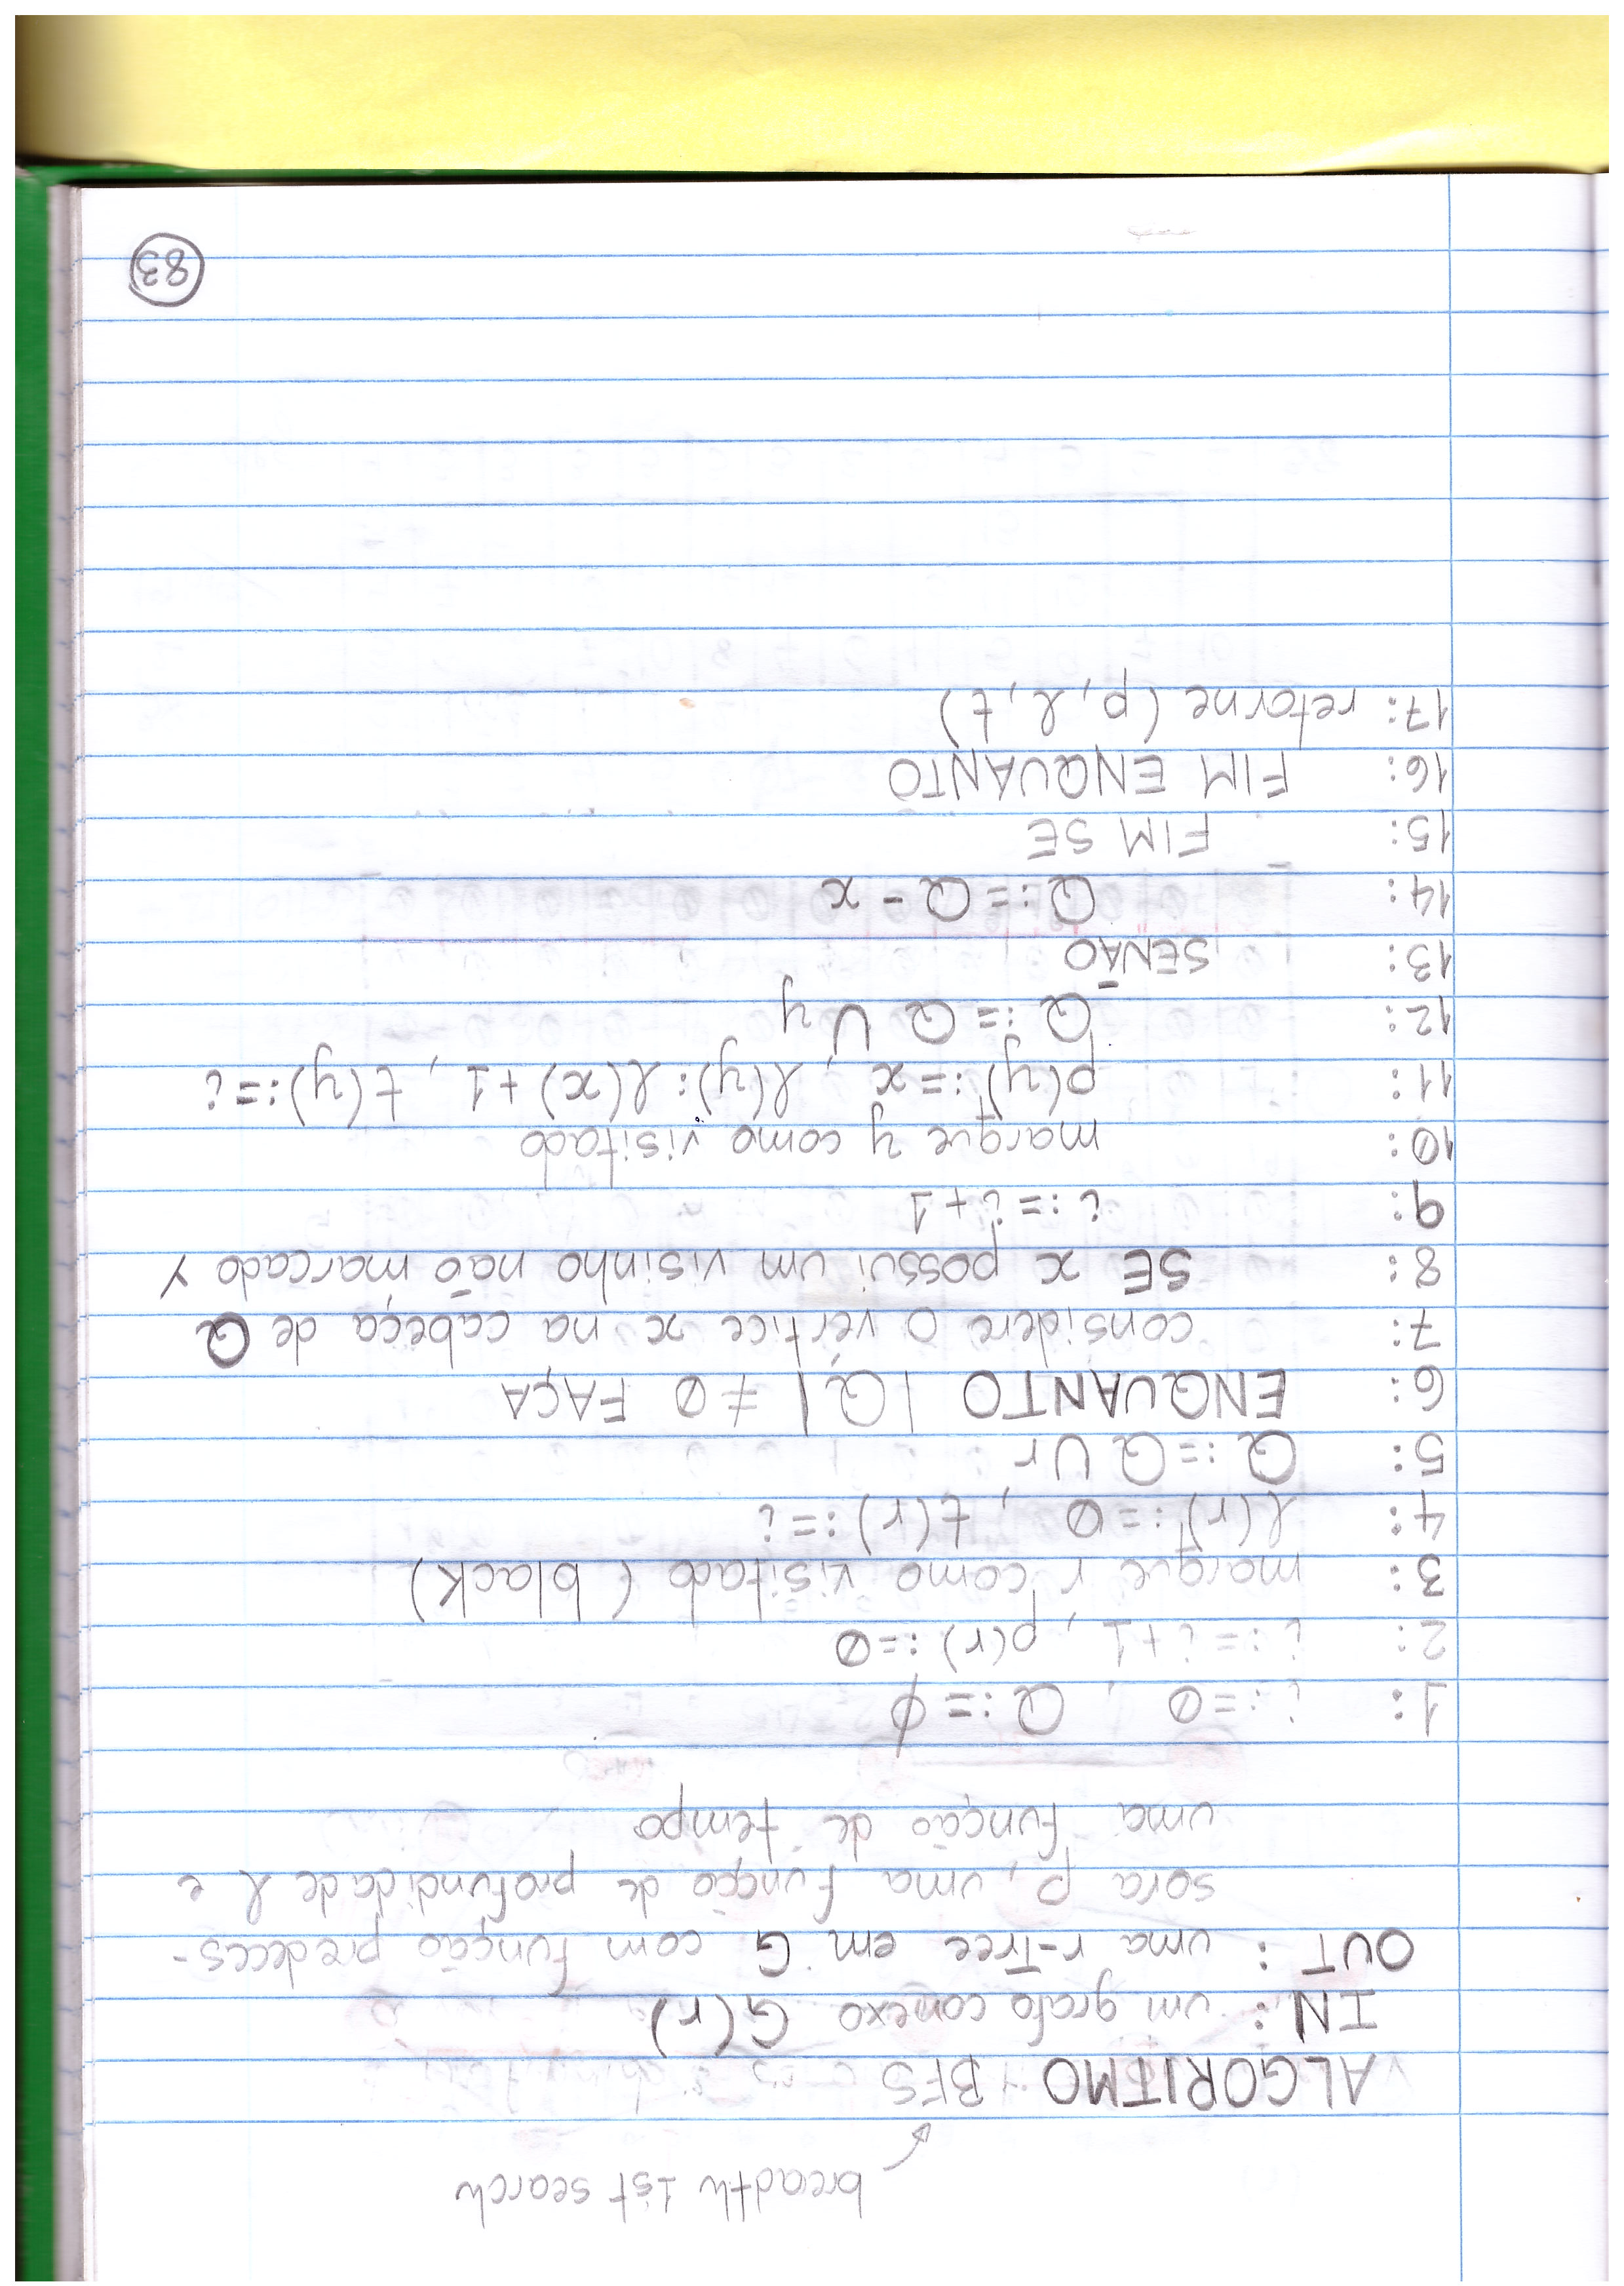 breadth 1st search
ALGORITMO BFS
IN: um grafo conexo G(r)
OUT: uma r-Tree em G com função predeces-
sora p, uma função de profundidade l e
uma função de tempo
1: i:=0, Q:=∅
2: i:=i+1, p(r):=0
3: marque r como visitado (black)
4: l(r):=0, t(r):=i
5: Q:=Q∪r
6: ENQUANTO |Q| ≠ 0 FAÇA
7: considere o vértice x na cabeça de Q
8: SE x possui um visinho não marcado y
9: i:=i+1
10: marque y como visitado
11: p(y):=x, l(y): l(x)+1, t(y):=i
12: Q:=Q∪y
13: SENÃO
14: Q:=Q-x
15: FIM SE
16: FIM ENQUANTO
17: retorne (p,l,t)
83